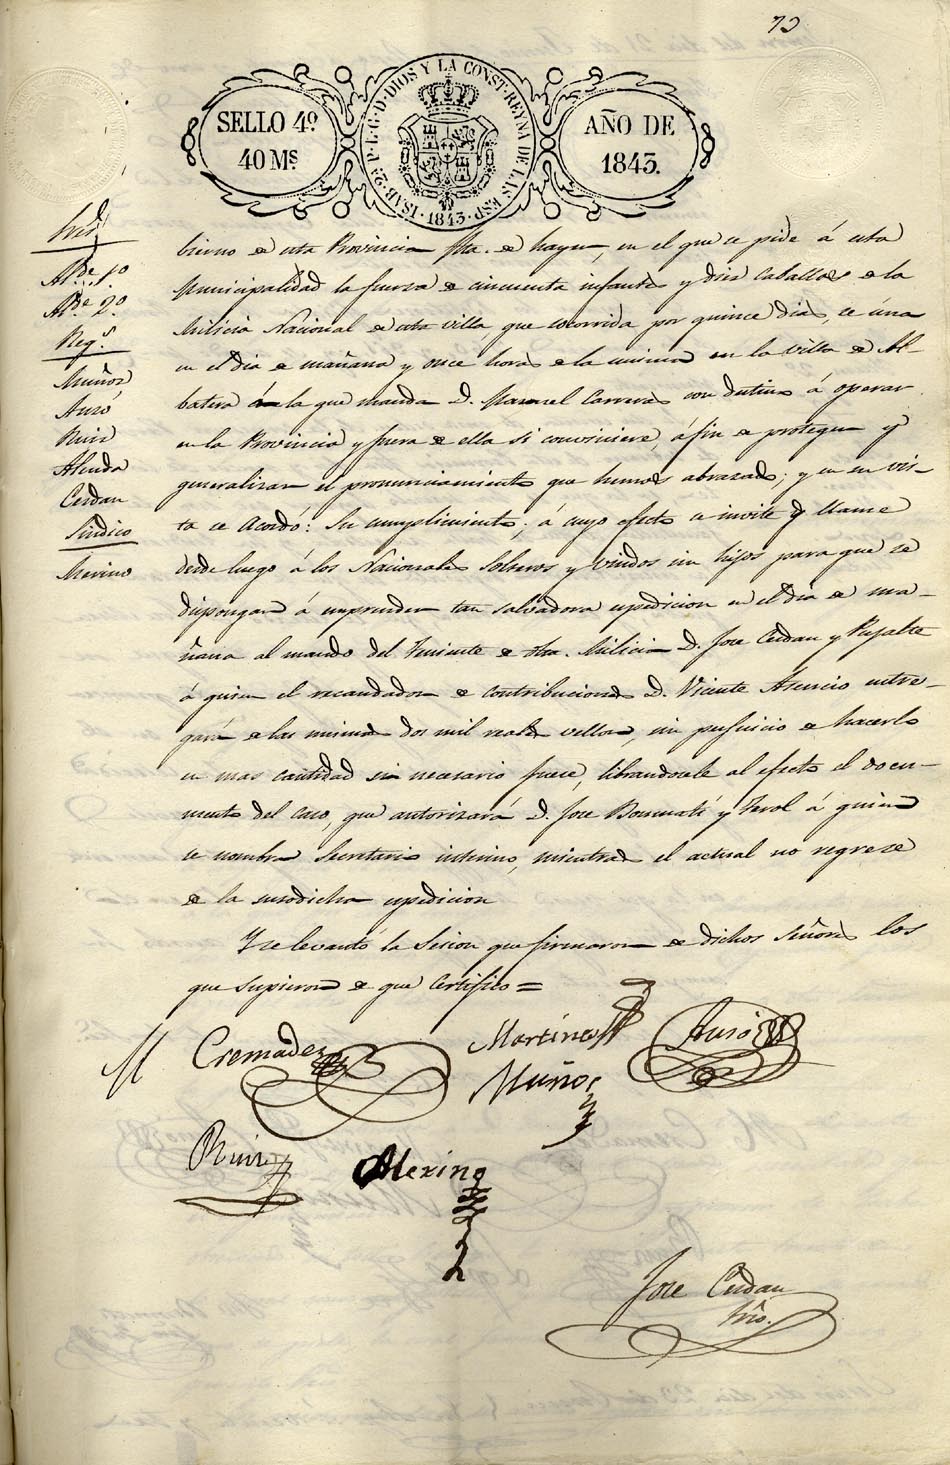 73
SELLO 4º
40 Ms.
ISAB. 2ª P. L. G. D. DIOS Y LA CONST. REYNA DE LAS ESP.
1843
AÑO DE
1843.
Alde 1º
Alde 2º
Regs
Muñoz
Auró
Ruiz
Asenda
Cerdan
Sindico
Merino
bierno de esta Provincia fha. de hayer, en el que se pide á esta
Municipalidad la fuerza de cincuenta infantes y diez caballos de la
Milicia Nacional de esta villa que socorrida por quince dias, se úna
en el dia de mañana y once horas de la misma en la villa de Al-
batera á la que manda D. Manuel Carreras con destino á operar
en la Provincia y fuera de ella si conviniere, á fin de proteger y
generalizar el pronunciamiento que hemos abrazado; y en su vis-
ta se Acordó: Su cumplimiento; á cuyo efecto se invite y llame
desde luego á los Nacionales solteros y viudos sin hijos para que se
dispongan á emprender tan salvadora espedicion en el dia de ma-
ñana al mando del Teniente de dha. Milicia D. Jose Cerdan y
á quien el recaudador de contribuciones D. Vicente Asencio entre-
gará de las mismas dos mil reales vellon, sin perjuicio de hacerlo
en mas cantidad si necesario fuese, librandosele al efecto el docu-
mento del caso, que autorizará D. Jose Bonmatí y Terol á quien
se nombra Secretario interino, mientras el actual no regrese
de la susodicha espedicion
Y se levantó la Sesion que firmaron de dichos Señores los
que supieron de que Certifico =
M Cremades
Martinez
Auró
Muñoz
Ruiz
Merino
Jose Cerdan
Srio.